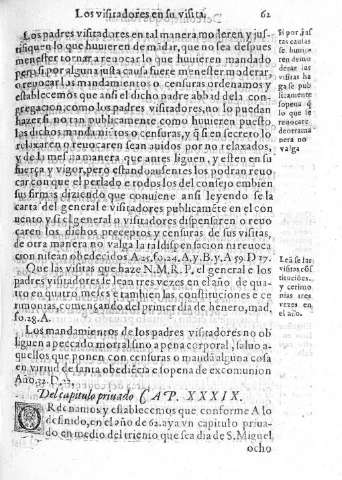 Los visitadores en su visita. 62
Los padres visitadores en tal manera moderen y jus-
tifiquen lo que huuieren de mãdar, que no sea despues
menester tornar a reuocar lo que huuieren mandado
pero si por alguna justa causa fuere menester moderar,
o reuocar las mandamientos o censuras ordenamos y
establecemos que ansi el dicho padre abbad de la con-
gregacion, como los padres visitadores, no lo puedan
hazer si no tan publicamente como huuieren puesto,
las dichos mandamiẽtos o censuras, y q̃ si en secreto lo
relaxaren o reuocaren sean auidos por no relaxados,
y de la mesma manera que antes liguen, y esten en su
fuerça y vigor, pero estando ausentes los podran reuo
car con que el perlado e todos los del consejo embien
sus firmas diziendo que conuiene ansi leyendo se la
carta del general e visitadores publicamẽte en el con
uento y si el general o visitadores dispensaren o reuo
caren los dichos preceptos y censuras de sus visitas,
de otra manera no valga la tal dispensacion ni reuoca
cion ni sean obedecidos A.25, fo.24. A, y B. y A 59. D 17.
Que las visitas que haze N.M.R.P, el general e los
padres visitadores se lean tres vezes en el año de quat-
to en quatro meses e tambien las constituciones e ce
rimonias, començando del primer dia de henero, mad,
fo.28. A.
Los mandamientos de los padres visitadores no ob
liguen a peccado mortal sino a pena corporal, saluo a-
quellos que ponen con censuras o mandã alguna cosa
en virtud de sancta obediẽcia e so pena de excomunion
Año, 32. D. 22,
Del capitulo priuado CAP. XXXIX.
ORdenamos y establecemos que conforme A lo
definido, en el año de 62. aya vn capitulo priua-
do en medio del trienio que sea dia de S. Miguel
ocho
Si por jus
tas causas
se huuie-
ren demo
derar las
visitas ha
ga se pub
licamente
so pena q̃
lo que se
reuocare
de otra ma
nera no
valga
Leã se las
visitas cõs
titucioẽs.
y cerimo
nias tres
vezes en
el año.